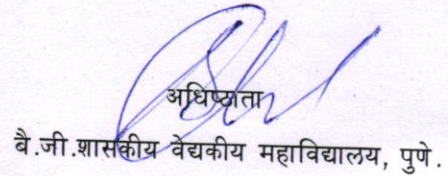 अधिष्ठाता
बै.जी.शासकीय वेद्यकीय महाविद्यालय, पुणे.